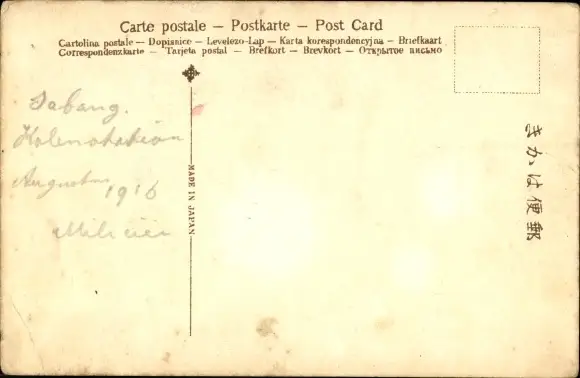 Carte postale — Postkarte — Post Card
Cartolina postale — Dopisnice — Levelezo-Lap — Karta korespondencyjna — Briefkaart
Correspondenzkarte — Tarjeta postal — Brefkort — Brevkort — Открытое письмо
Sabang.
Kolenstation
Augustus
1916
MADE IN JAPAN
きかは便郵